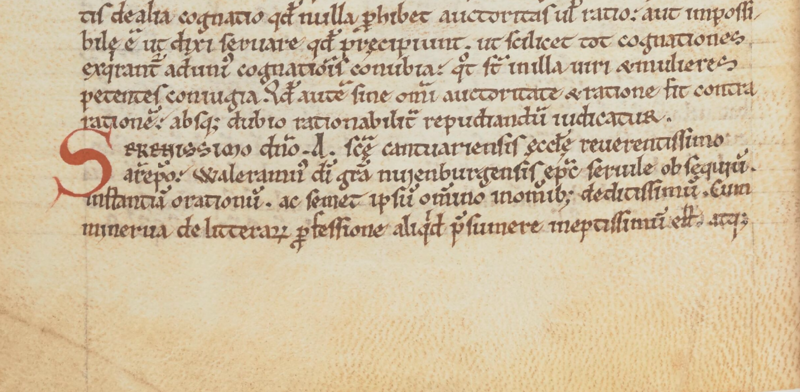 tis de alia cognatio qđ nulla ꝓhibet auctoritas ul᷑ ratio: aut impossi-
bile ē ut dixi seruare qđ p̄ręcipiunt. ut scilicet tot cognationes
exq̇rant᷑ ad uni᷒ cognatiōis conubia: qͦt st̄ in illa uiri & mulieres
petentes coniugia. Qđ autē sine om̄i auctoritate & ratione fit contra
rationē: absq; dubio rationabilit̄ repudiandū iudicatur.
Serenissimo dn̄o. A. scę̄ cantuariensis ęccl̄ę reuerentissimo
arēp̄o: Waleramn᷒ dī gr̄a nuenburgensis ep̄c seruile obsequiū.
instantiā orationū. ac semet ipsū om̄ino in om̄ib; deditissimū. Cum
minerua de litterarꝝ ꝓfessione aliqͥd p̄sumere ineptissimū eēt. atq;